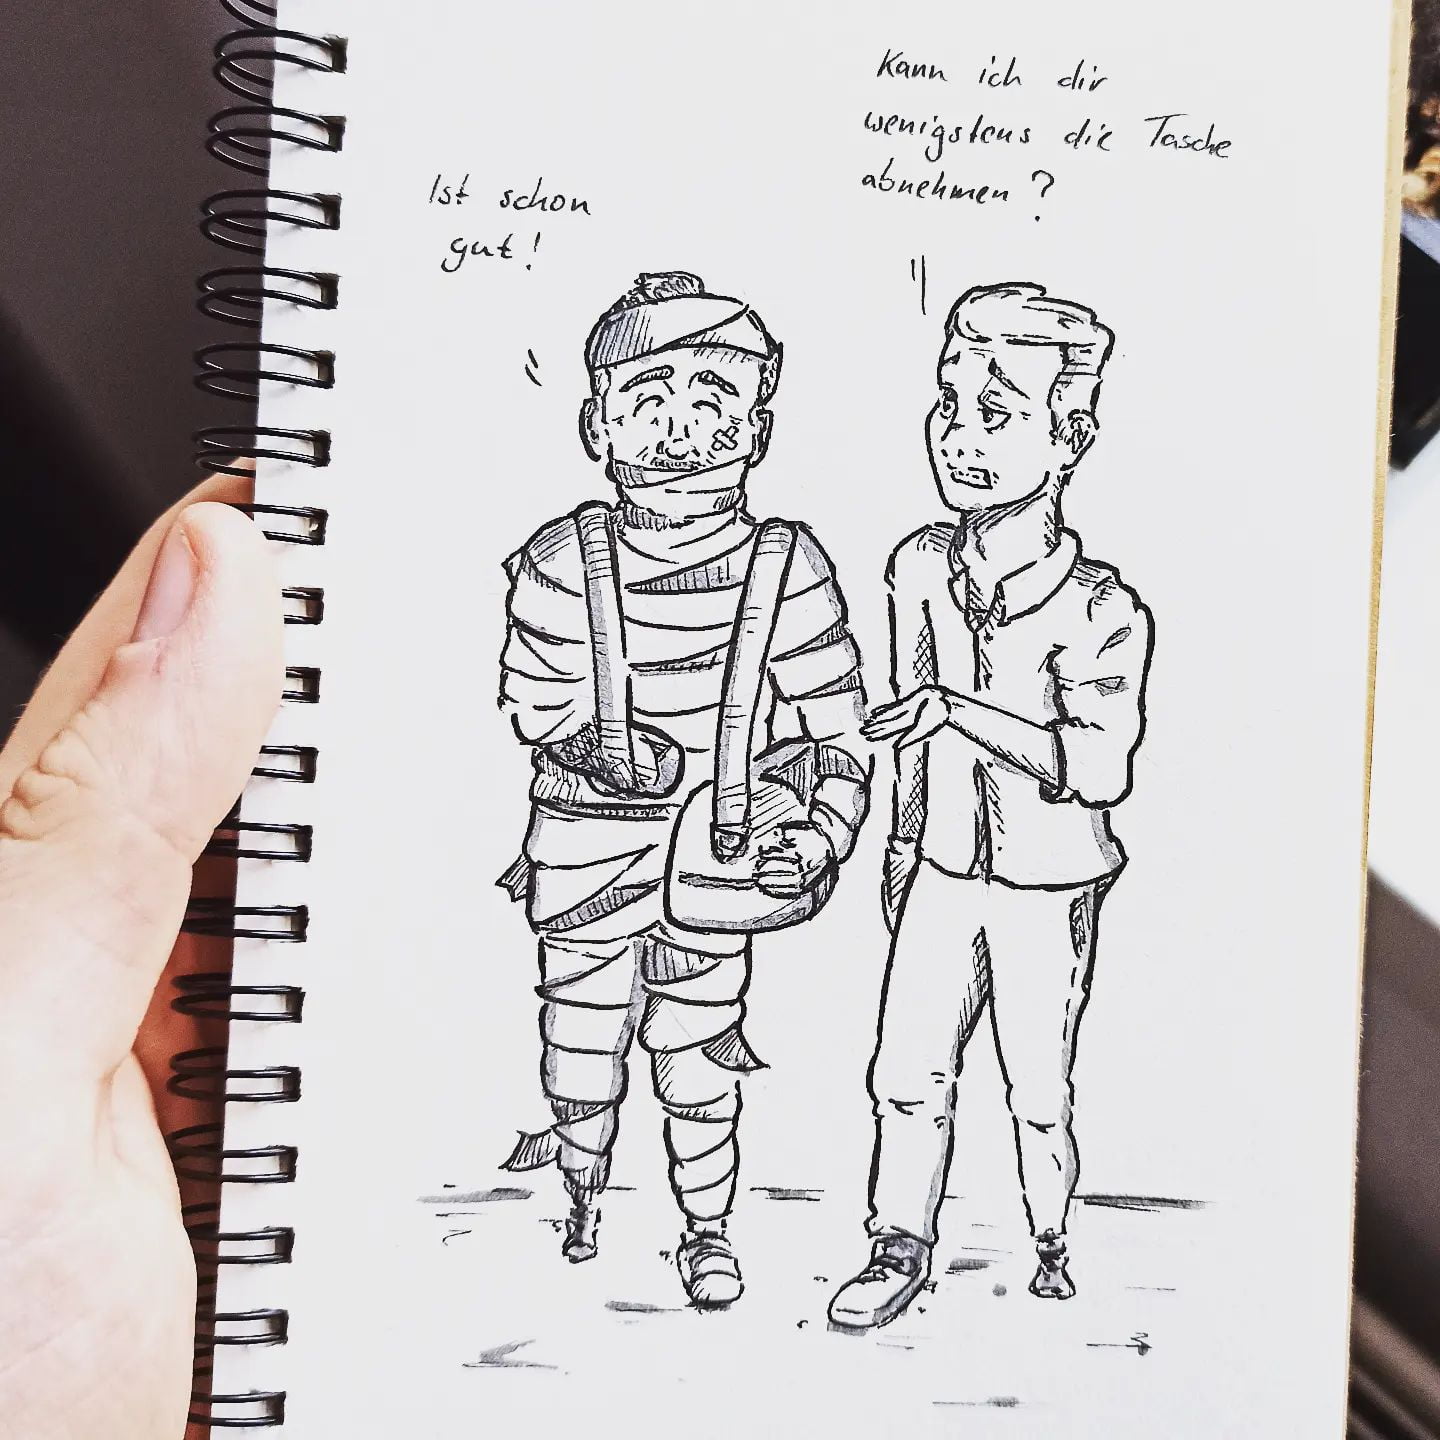 Kann ich dir
wenigstens die Tasche
abnehmen?
Ist schon
gut!